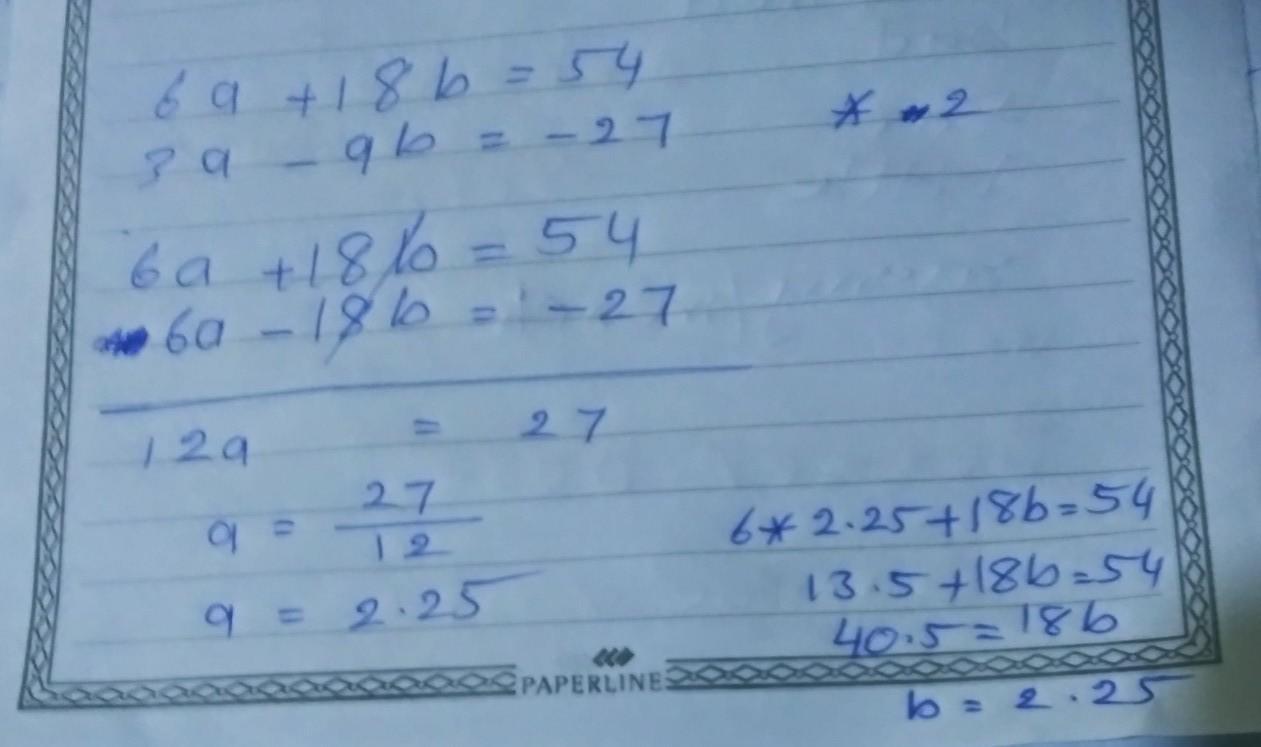 6a + 18b = 54
3a - 9b = -27 * 2
6a + 18b = 54
6a - 18b = -27
12a = 27
a = 27/12
a = 2.25
6* 2.25 + 18b = 54
13.5 + 18b = 54
40.5 = 18b
b = 2.25
PAPERLINE